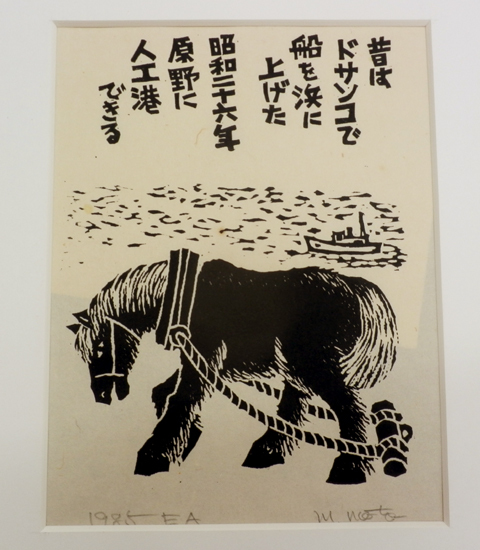 昔は
ドサンコで
船を浜に
上げた
昭和二十六年
原野に
人工港
できる
1985 EA